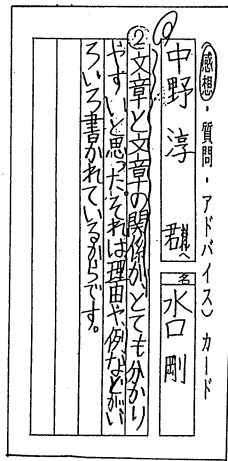 感想・質問・アドバイス）カード
中野 淳 君へ
名 水口 剛
②文章と文章の関係が、とても分かり
やすいと思った。それは理由や、例などがい
ろいろ書かれているからです。